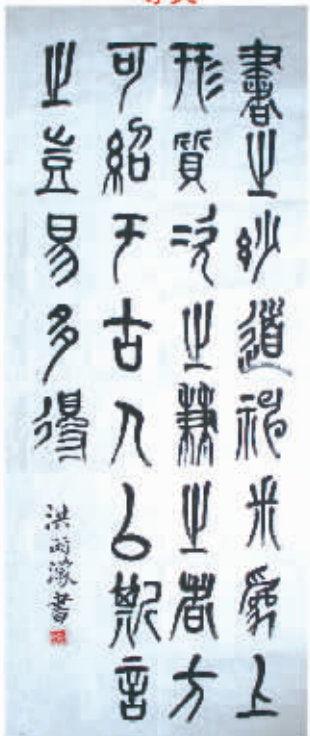 書之妙道神采爲上
形質次之兼之者方
可紹于古人以斯言
之豈易多得
洪丙書